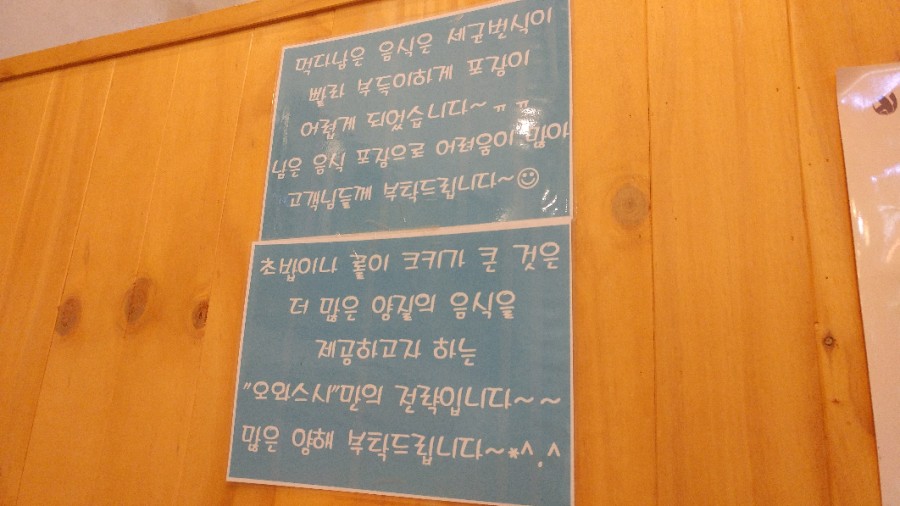 먹다남은 음식은 세균번식이
빨라 부득이하게 포장이
어렵게 되었습니다~ ㅠㅠ
남은 음식 포장으로 어려움이 많아
고객님들께 부탁드립니다~☺
초밥이나 롤이 크키가 큰 것은
더 많은 양질의 음식을
제공하고자 하는
"오와스시"만의 전략입니다~~
많은 양해 부탁드립니다~*^.^